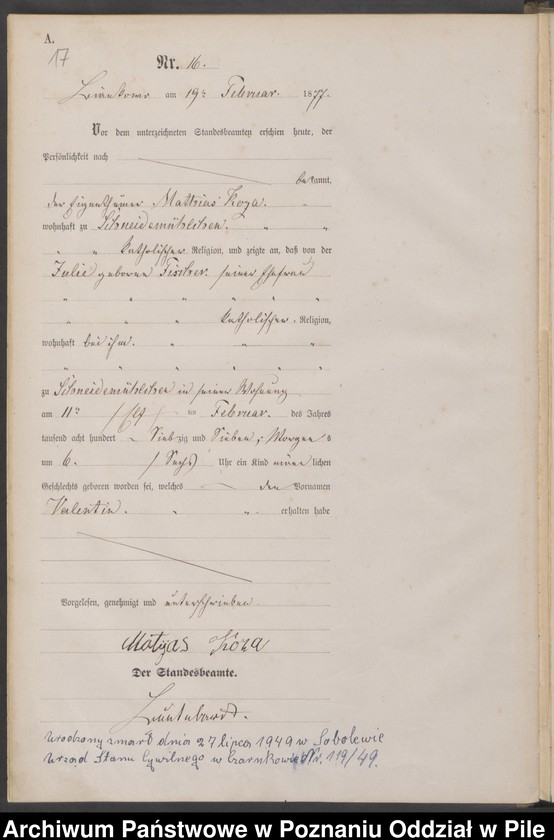 A.
17
Nr. 16.
am 19ten Februar. 1877.
Vor dem unterzeichneten Standesbeamten erschien heute, der
Persönlichkeit nach
bekannt,
der Eigenthümer Mathias Koza.
wohnhaft zu Schneidemühlchen.
katholischer Religion, und zeigte an, daß von der
Julie geborne Fischer seiner Ehefrau
katholischer Religion,
wohnhaft bei ihm.
zu Schneidemühlchen in seiner Wohnung
am 11ten ten Februar. des Jahres
tausend acht hundert Siebzig und Sieben, Morgens
um 6. (Sechs) Uhr ein Kind männlichen
Geschlechts geboren worden sei, welches den Vornamen
Valentin. erhalten habe
Vorgelesen, genehmigt und unterschrieben
Matyas Koza
Der Standesbeamte.
urodzony zmarł dnia 27 lipca 1949 w Sobolewie
Urząd Stanu Cywilnego w Czarnkowie Nr. 119/49.
Archiwum Państwowe w Poznaniu Oddział w Pile